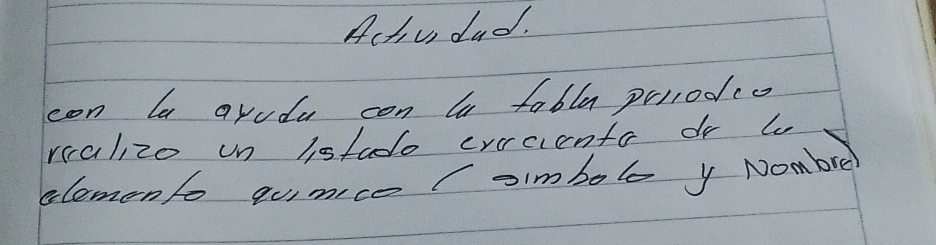 Actividad.
con la ayuda con la tabla periodico
realizo un listado creciente de lo
elemento quimico ( simbolo y Nombre)